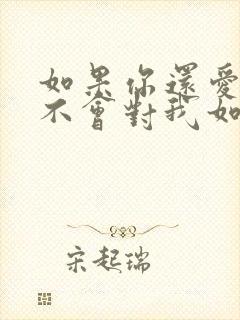 如果你還愛
不會對我如
宋起瑞